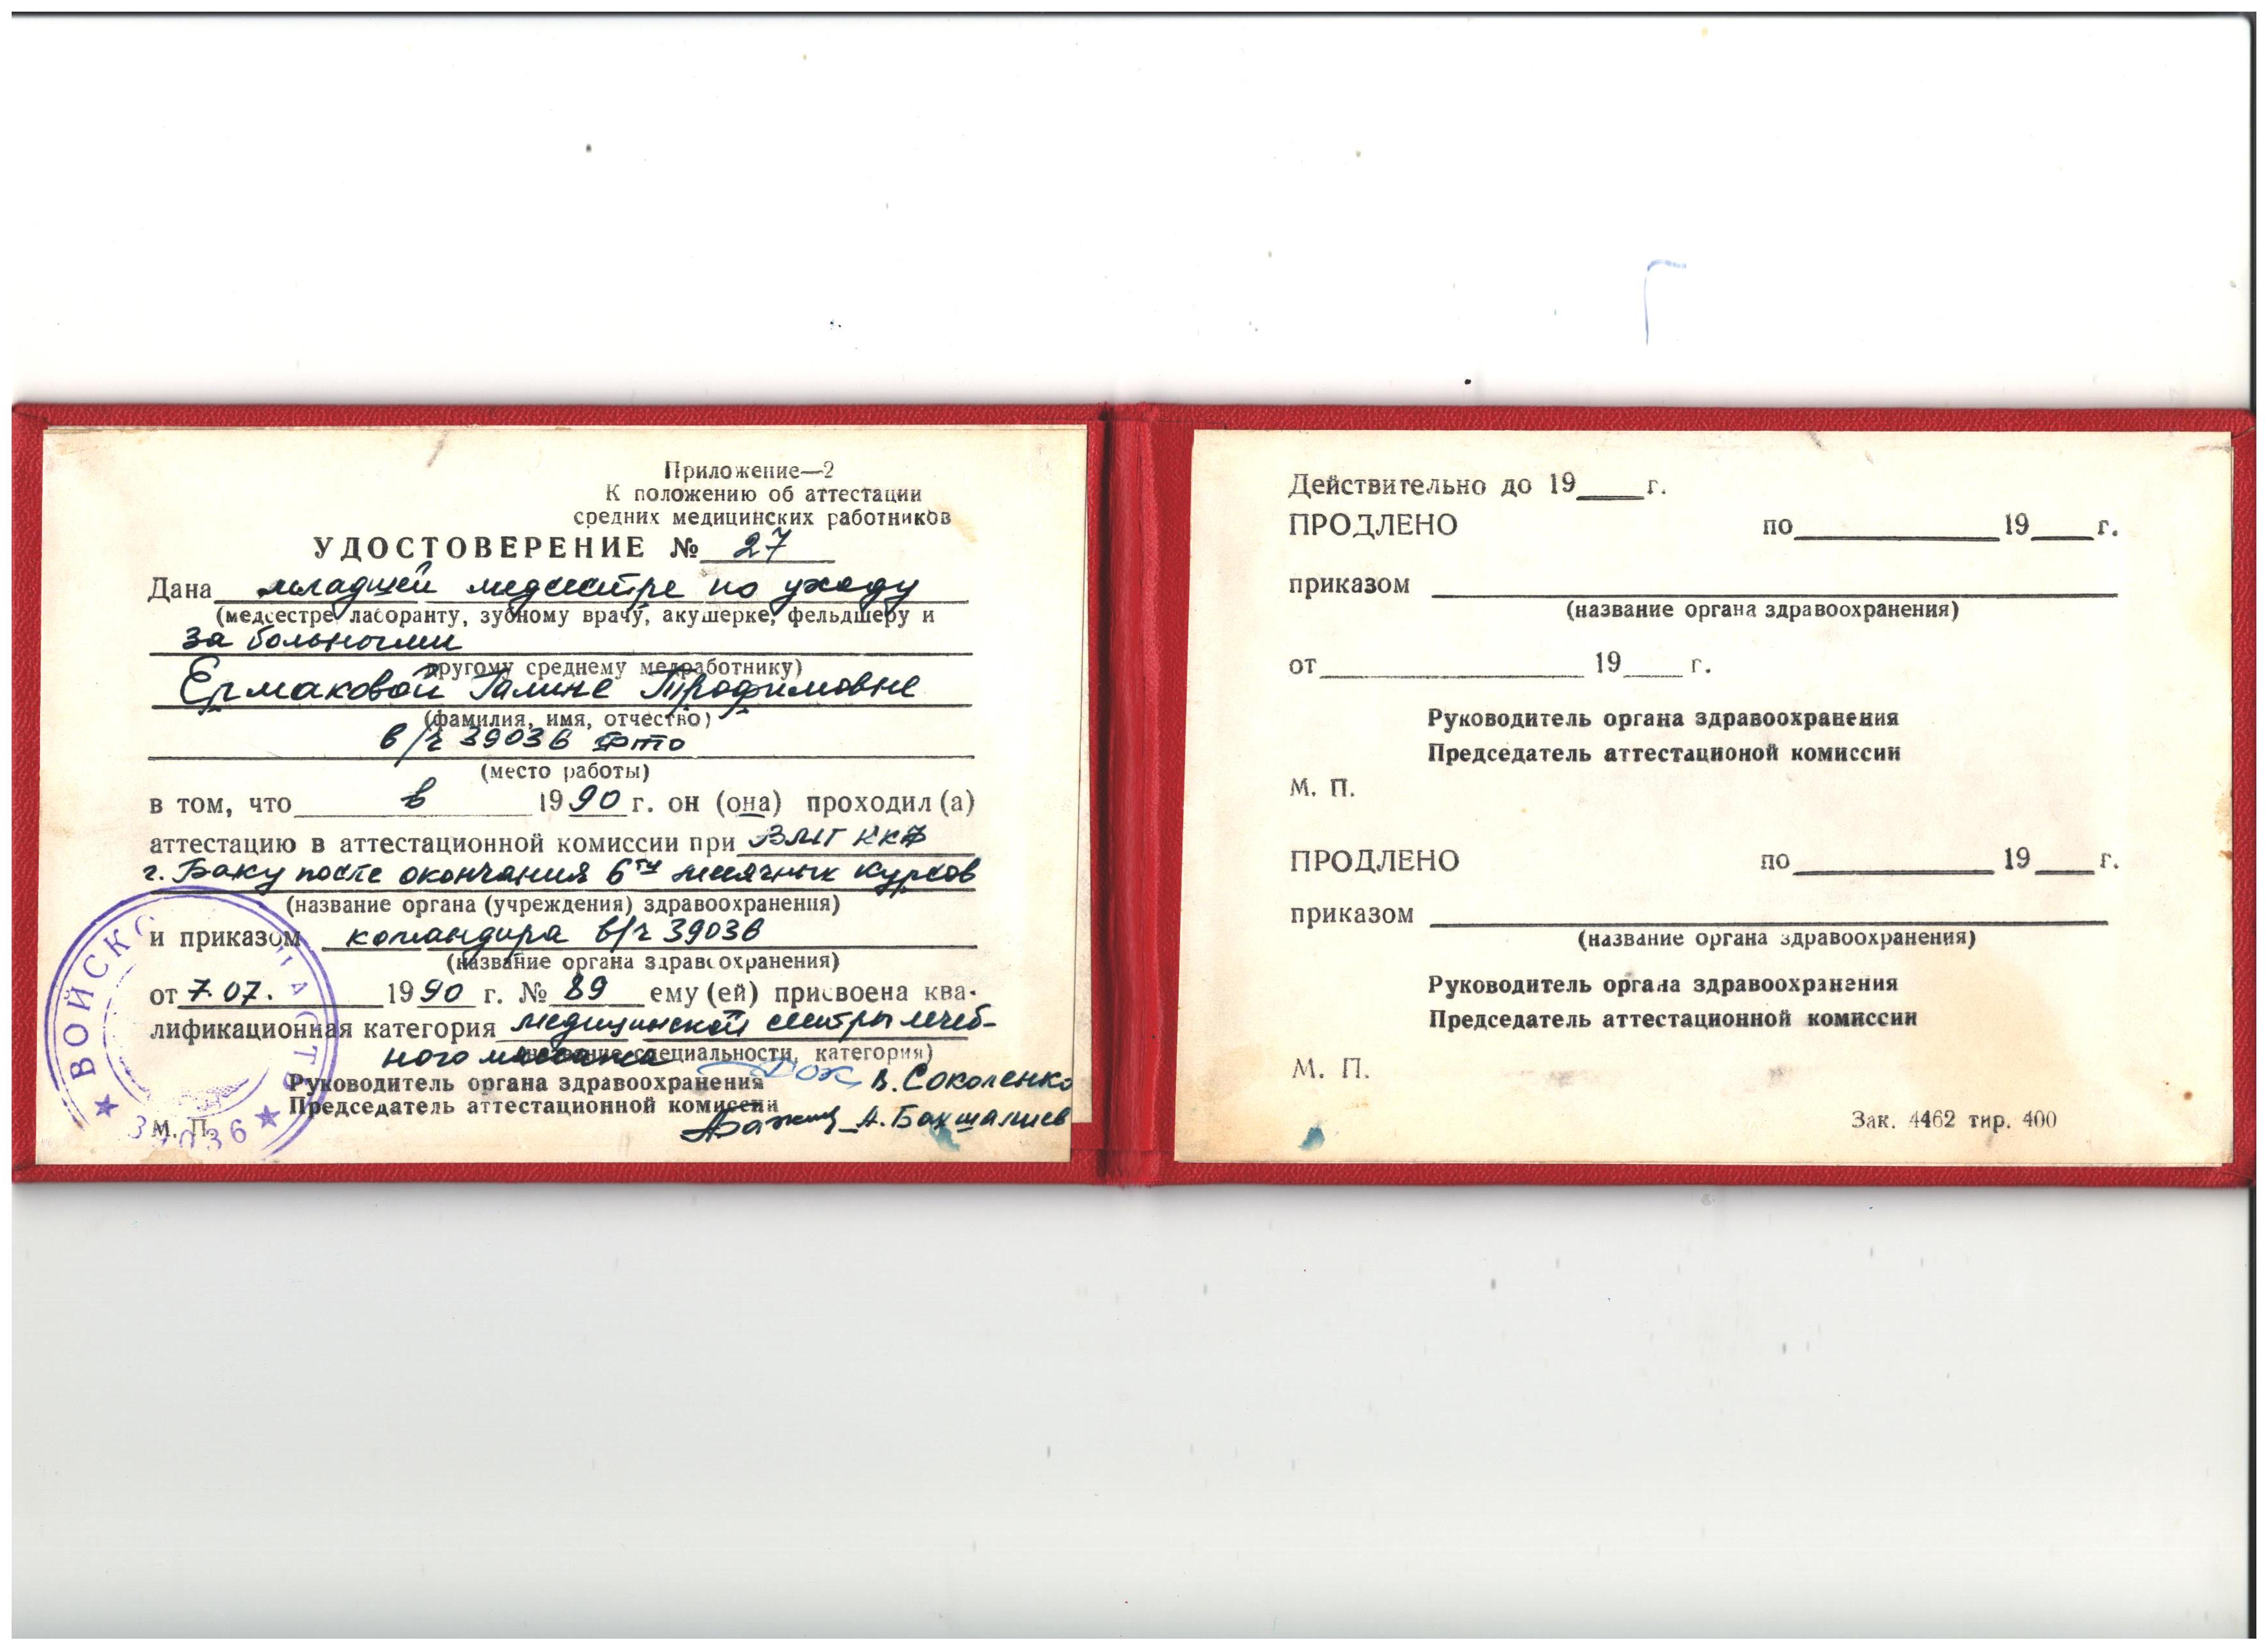 Приложение—2
К положению об аттестации
средних медицинских работников
УДОСТОВЕРЕНИЕ № 27
Дана младшей медсестре по уходу
(медсестре лаборанту, зубному врачу, акушерке, фельдшеру и
за больными
другому среднему медработнику)
Ермаковой Галине Трофимовне
(фамилия, имя, отчество)
в/ч 39036 ФТО
(место работы)
в том, что в 1990 г. он (она) проходил (а)
аттестацию в аттестационной комиссии при ВМГ ККФ
г. Баку после окончания 6ти месячных курсов
(название органа (учреждения) здравоохранения)
и приказом командира в/ч 39036
(название органа здравоохранения)
от 7.07. 1990 г. № 89 ему (ей) присвоена ква-
лификационная категория медицинской сестры лечеб-
ного массажа
специальности, категория)
Руководитель органа здравоохранения В. Соколенко
Председатель аттестационной комиссии А. Бахшалиев
М. П.
ВОЙСКОВАЯ ЧАСТЬ
39036
Действительно до 19 г.
ПРОДЛЕНО по 19 г.
приказом
(название органа здравоохранения)
от 19 г.
Руководитель органа здравоохранения
Председатель аттестационой комиссии
М. П.
ПРОДЛЕНО по 19 г.
приказом
(название органа здравоохранения)
Руководитель органа здравоохранения
Председатель аттестационной комиссии
М. П.
Зак. 4462 тир. 400